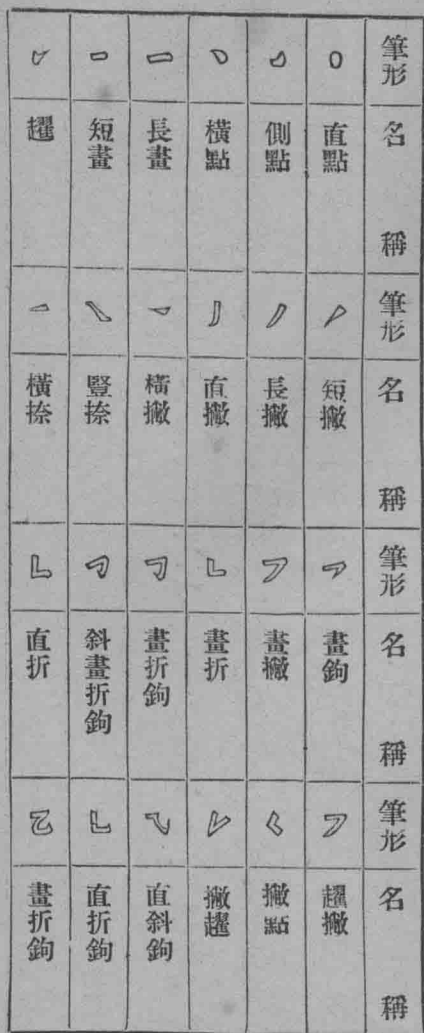 筆形 名稱 筆形 名稱 筆形 名稱 筆形 名稱
直點 短撇 畫鉤 趯撇
側點 長撇 畫撇 撇點
橫點 直撇 畫折 撇趯
長畫 橫撇 畫折鉤 直斜鉤
短畫 豎捺 斜畫折鉤 直折鉤
趯 橫捺 直折 畫折鉤